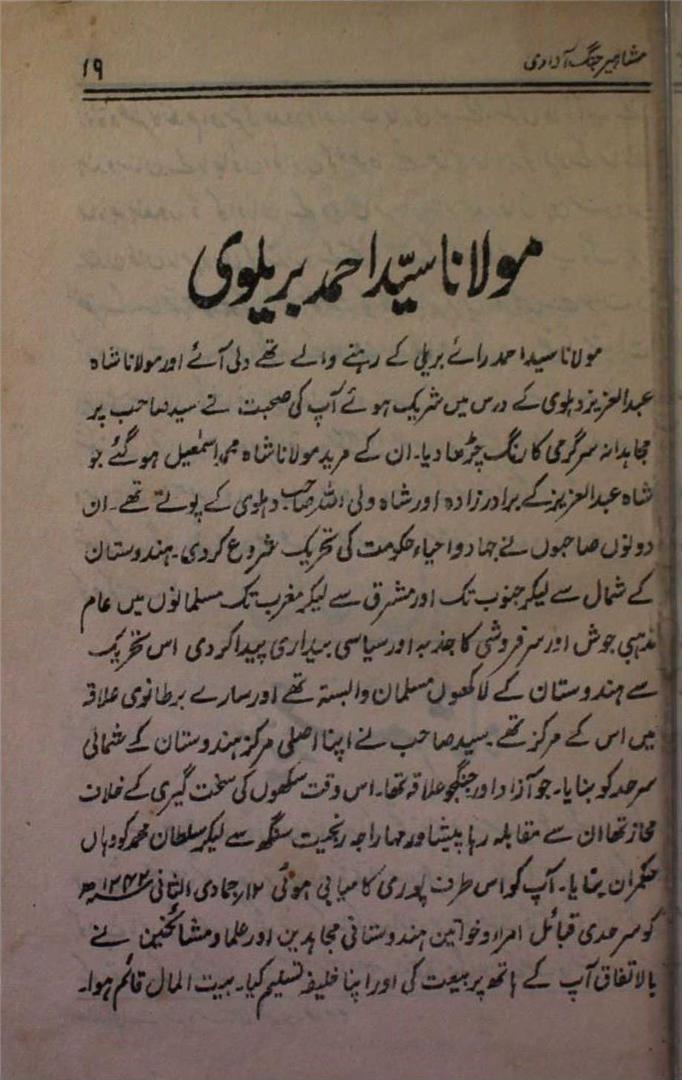 مشاہیر جنگ آزادی
۱۹
مولانا سیّد احمد بریلوی
مولانا سید احمد رائے بریلی کے رہنے والے تھے دلی آئے اور مولانا شاہ
عبدالعزیز دہلوی کے درس میں شریک ہوئے آپ کی صحبت نے سید صاحب پر
مجاہدانہ سرگرمی کا رنگ چڑھا دیا۔ ان کے مرید مولانا شاہ محمد اسمٰعیل ہو گئے جو
شاہ عبدالعزیز کے برادر زادہ اور شاہ ولی اللہ صاحب دہلوی کے پوتے تھے۔ ان
دونوں صاحبوں نے جہاد و احیاء حکومت کی تحریک شروع کر دی۔ ہندوستان
کے شمال سے لیکر جنوب تک اور مشرق سے لیکر مغرب تک مسلمانوں میں عام
مذہبی جوش اور سرفروشی کا جذبہ اور سیاسی بیداری پیدا کر دی اس تحریک
سے ہندوستان کے لاکھوں مسلمان وابستہ تھے اور سارے برطانوی علاقہ
میں اس کے مرکز تھے۔ سید صاحب نے اپنا اصلی مرکز ہندوستان کے شمالی
سرحد کو بنایا۔ جو آزاد اور جنگجو علاقہ تھا۔ اس وقت سکھوں کی سخت گیری کے خلاف
محاز تھا ان سے مقابلہ رہا پیشاور مہاراجہ رنجیت سنگھ سے لیکر سلطان محمد کو وہاں
حکمران بنایا۔ آپ کو اس طرف پوری کامیابی ہوئی ۱۲ر جمادی الثانی ۱۲۴۲ھ
کو سرحدی قبائل امراء و خواتین ہندوستانی مجاہدین اور علماء و مشائخین نے
بالاتفاق آپ کے ہاتھ پر بیعت کی اور اپنا خلیفہ تسلیم کیا۔ بیت المال قائم ہوا۔